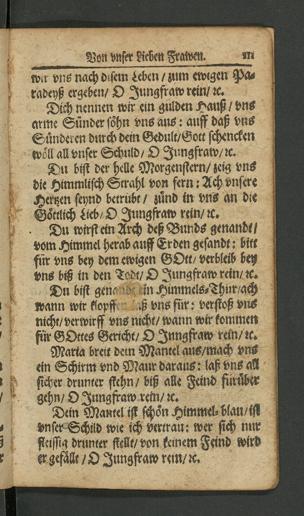 Von vnser Lieben Frawen. 211
wir vns nach disem Leben / zum ewigen Pa-
radeyß ergeben / O Jungfraw rein / ꝛc.
Dich nennen wir ein gulden Hauß / vns
arme Sünder söhn vns aus: auff daß vns
Sünderen durch dein Gedult / Gott schencken
wöll all vnser Schuld / O Jungfraw / ꝛc.
Du bist der helle Morgenstern / zeig vns
die Himmlisch Strahl von fern: Ach vnsere
Hertzen seynd betrübt / zünd in vns an die
Göttlich Lieb / O Jungfraw rein / ꝛc.
Du wirst ein Arch deß Bunds genandt /
vom Himmel herab auff Erden gesandt: bitt
für vns bey dem ewigen GOtt / verbleib bey
vns biß in den Todt / O Jungfraw rein / ꝛc.
Du bist genandt ein Himmels-Thür / ach
wann wir klopffen laß vns für: verstoß vns
nicht / verwirff vns nicht / wann wir kommen
für GOttes Gericht / O Jungfraw rein / ꝛc.
Maria breit dein Mantel aus / mach vns
ein Schirm vnd Maur daraus: laß vns all
sicher drunter stehn / biß alle Feind fürüber
gehn / O Jungfraw rein / ꝛc.
Dein Mantel ist schön Himmel-blau / ist
vnser Schild wie ich vertrau: wer sich nur
fleissig drunter stellt / von keinem Feind wird
er gefällt / O Jungfraw rein / ꝛc.